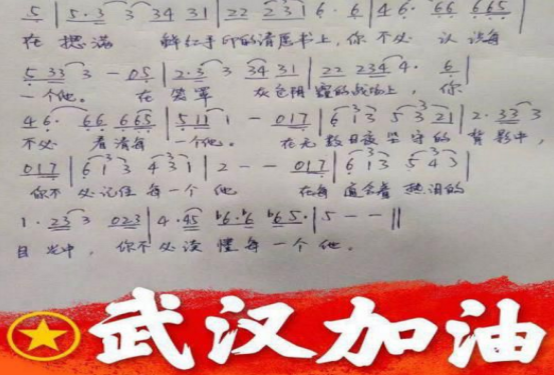 5 | 5·3 3 34 31 | 22 231 6· 6 | 46· 66 665 |
在 摁满 鲜红手印的请愿书上,你 不必 认 识每
5 33 3 - 05 | 2·3 3 34 31 | 22 234 4· 6 |
一个他。 在 笼罩 灰色阴霾的战场上,你
46· 66 665 | 511 1 - 017 | 613 5 3 21 | 2·33 3
不必 看清每 一个他。 在无 数日夜坚守的 背影中,
017 | 613 431 | 2 - - 017 | 613 543 |
你不 必记住每一个 他 在每 道含着 热泪的
1·23 3 023 | 4·45 b6·b6 b65· | 5 - - ||
目光中, 你不必读 懂每一个他。
武汉加油